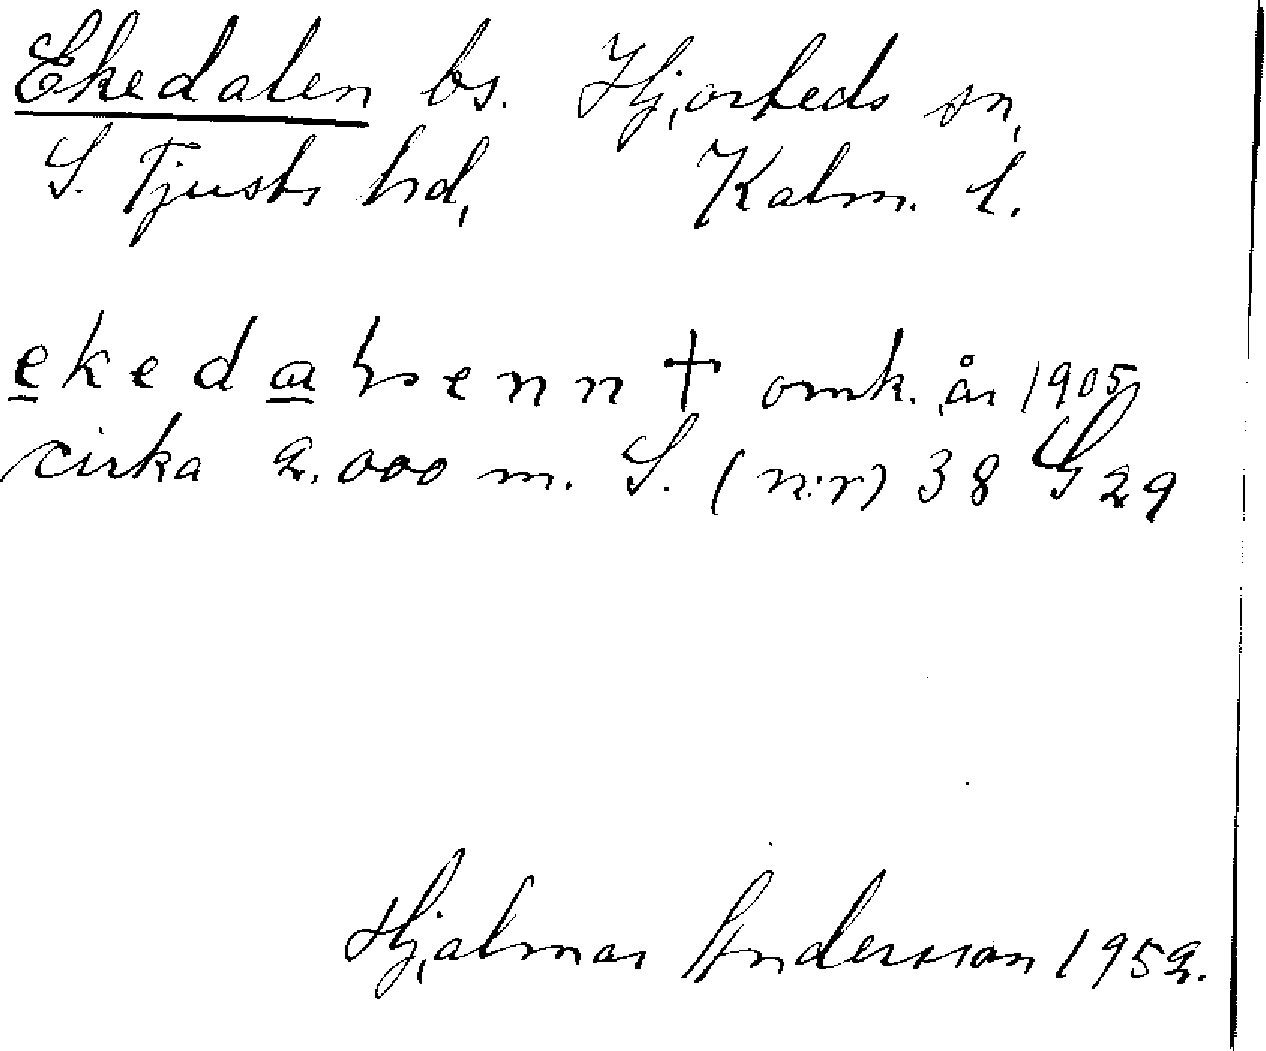 Ekedalen bs. Hjorteds sn,
S. Tjusts hd, Kalm. l.
ekedahsenn † omk. år 1905
cirka 2.000 m. S. (n:r) 38 G 29
Hjalmar Andersson 1952.